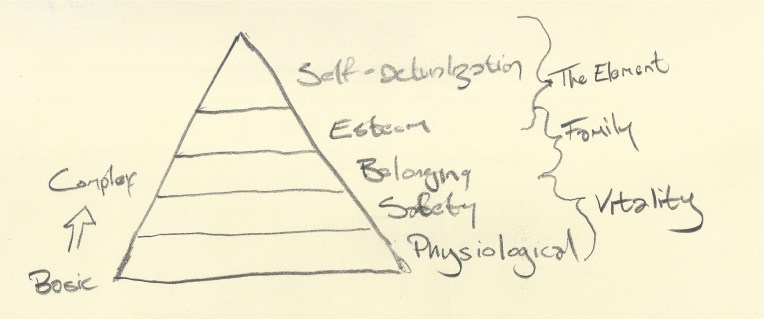 Self-Actualization
The Element
Esteem
Family
Belonging
Complex
Safety
Vitality
Physiological
Basic